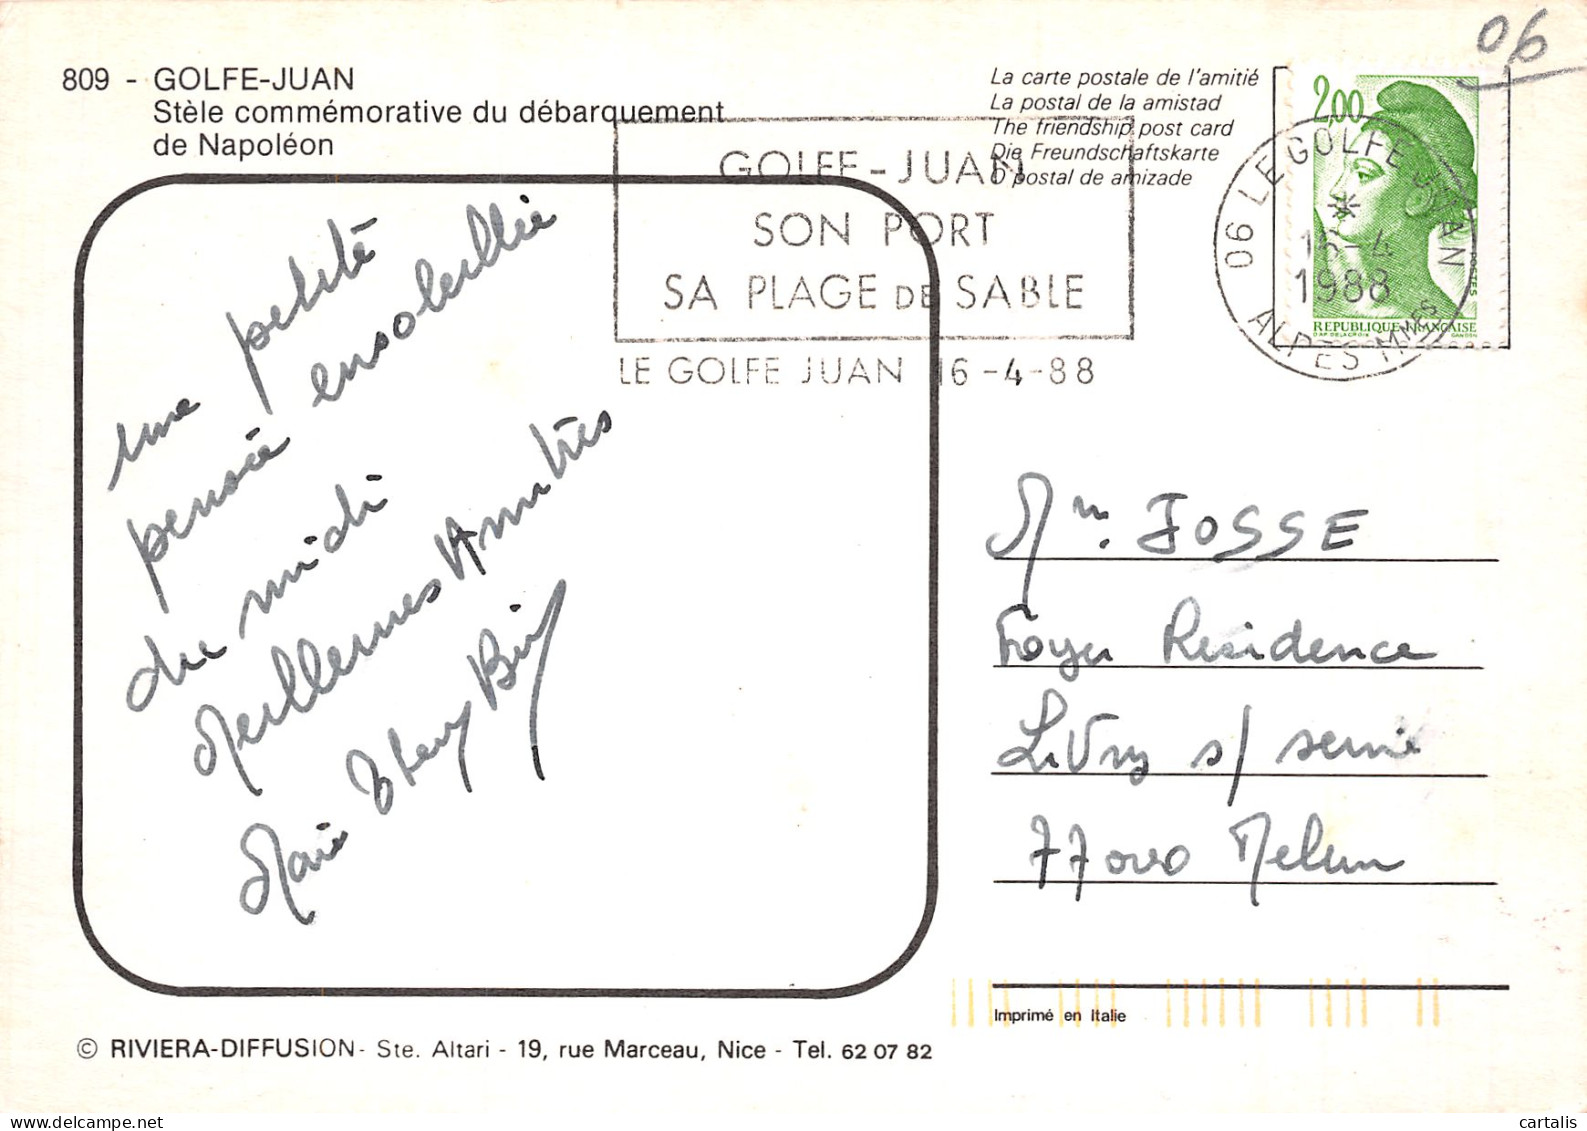 06
809 - GOLFE-JUAN
Stèle commémorative du débarquement
de Napoléon
La carte postale de l'amitié
La postal de la amistad
The friendship post card
Die Freundschaftskarte
O postal de amizade
GOLFE-JUAN
SON PORT
SA PLAGE DE SABLE
LE GOLFE JUAN 16-4-88
2,00
POSTES
REPUBLIQUE FRANÇAISE
06 LE GOLFE JUAN
16-4
1988
ALPES MMES
une petite
pensée ensoleillée
du midi
Meilleures Amitiés
Marie
Mm. JOSSE
Foyer Résidence
Livry s/ seine
77000 Melun
Imprimé en Italie
© RIVIERA-DIFFUSION - Ste. Altari - 19, rue Marceau, Nice - Tel. 62 07 82
cartalis